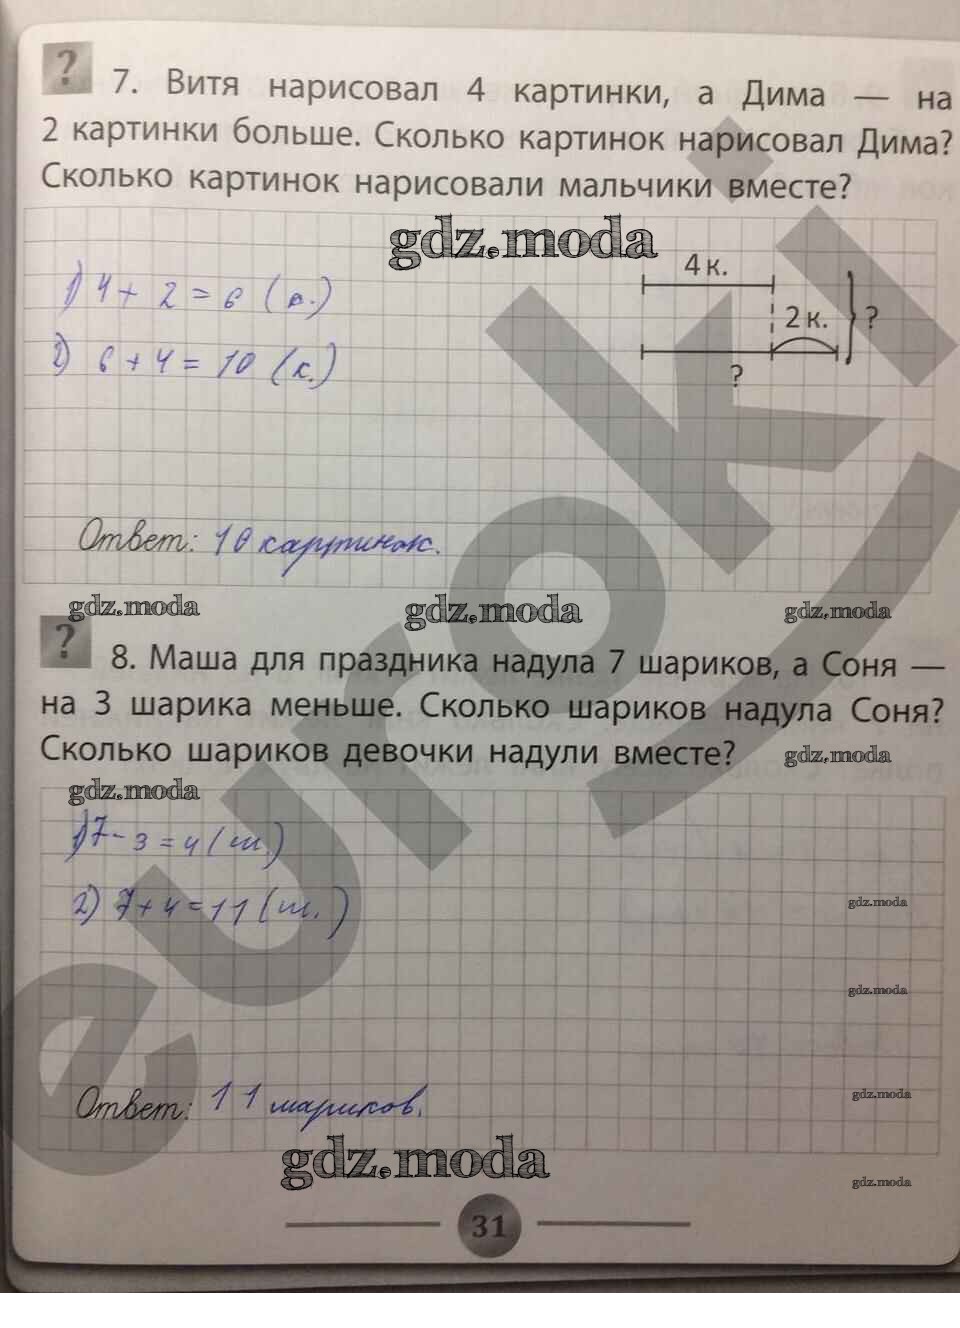 ?
7. Витя нарисовал 4 картинки, а Дима — на
2 картинки больше. Сколько картинок нарисовал Дима?
Сколько картинок нарисовали мальчики вместе?
gdz.moda
1) 4 + 2 = 6 (к.)
2) 6 + 4 = 10 (к.)
4 к.
2 к.
?
?
Ответ: 10 картинок.
gdz.moda gdz.moda gdz.moda
?
8. Маша для праздника надула 7 шариков, а Соня —
на 3 шарика меньше. Сколько шариков надула Соня?
Сколько шариков девочки надули вместе?
gdz.moda
gdz.moda
1) 7 - 3 = 4 (ш.)
2) 7 + 4 = 11 (ш.)
gdz.moda
gdz.moda
Ответ: 11 шариков.
gdz.moda
gdz.moda
gdz.moda
31
euroki